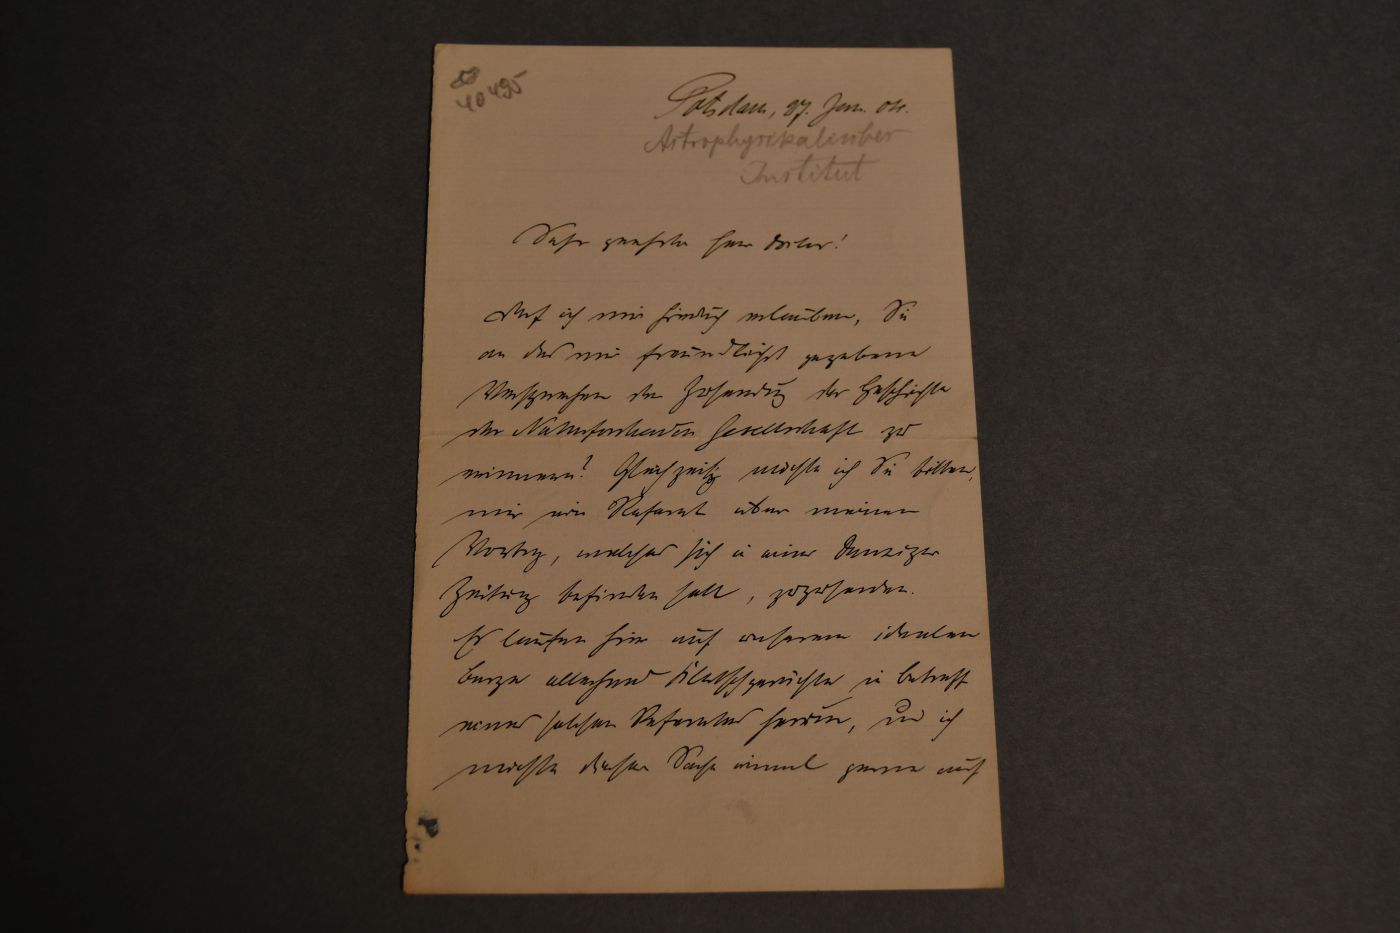 40495
Potsdam, 27. Jan. 04.
Astrophysikalischer
Institut
Sehr geehrter Herr Doctor!
Darf ich mir hierdurch erlauben, Sie
an das mir freundlichst gegebene
Versprechen der Zusendung der Geschichte
der Naturforschenden Gesellschaft zu
erinnern? Gleichzeitig möchte ich Sie bitten,
mir ein Referat über meinen
Vortrag, welches sich in einer Danziger
Zeitung befinden soll, zuzusenden.
Es laufen hier auf unserem idealen
Berge allerhand Klatschgerüchte in betreff
eines solchen Referates herum, und ich
möchte dieser Sache einmal gerne auf